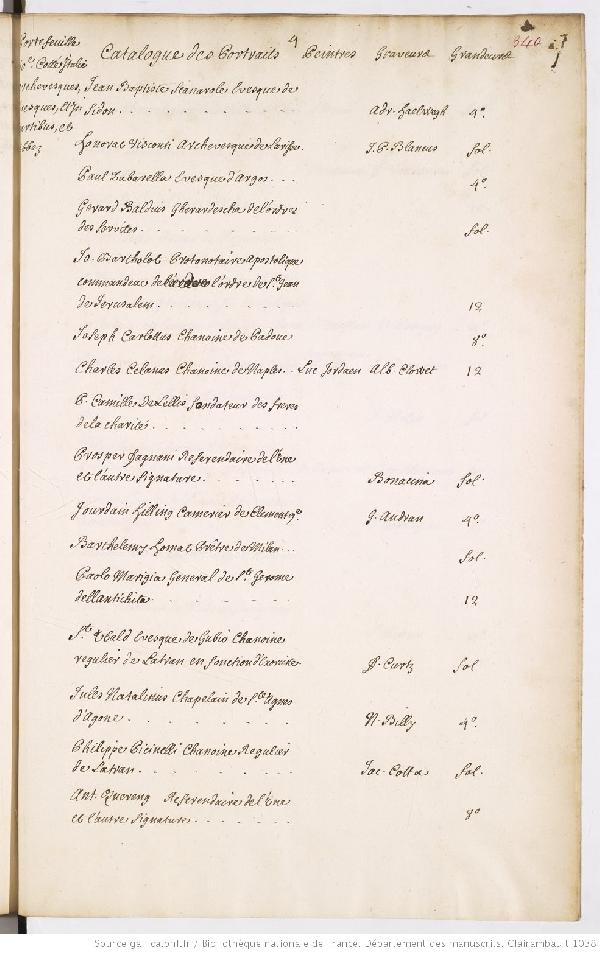 Portefeuille
Catalogue des Portraits
4
Peintres Graveurs Grandeurs
340
Jean Baptiste Evesque de
Sidon Adr. Haelwegh 4º
Honorat Visconti Archevesque de Larisse J. P. Blancus fol.
Paul Zabarella Evesque d'Argos 4º
Gerard Baldius Gherardescha de l'ordre
des Servites fol.
Jo. Bartholot Protonotaire Apostolique
commandeur de l'ordre de St. Jean
de Jerusalem 12
Joseph Carlottus Chanoine de Padoue 8º
Charles Celanos Chanoine de Naples Luc Jordaen Alb. Clowet 12
P. Camille De Lellis fondateur des freres
de la charité
Prosper Fagnani Referendaire de l'une
et l'autre Signature Bonacina fol.
Jourdain Hilling Camerier de Clement 9e G. Audran 4º
Barthelemy Prêtre de Milan fol.
Paolo Marigia General de St. Gerome
dell antichita 12
St. Ubald Evesque de Gubio Chanoine
regulier de Latran en fonction d'exorciste P. Curtz fol
Jules Natalinus Chapelain de Ste. Agnes
d'Agone N. Billy 4º
Philippe Picinelli Chanoine Regulier
de Latran Jac. Cotta fol.
Ant. Quereng Referendaire de l'une
et l'autre Signature 8º
Source gallica.bnf.fr / Bibliothèque nationale de France. Département des manuscrits. Clairambault 1038